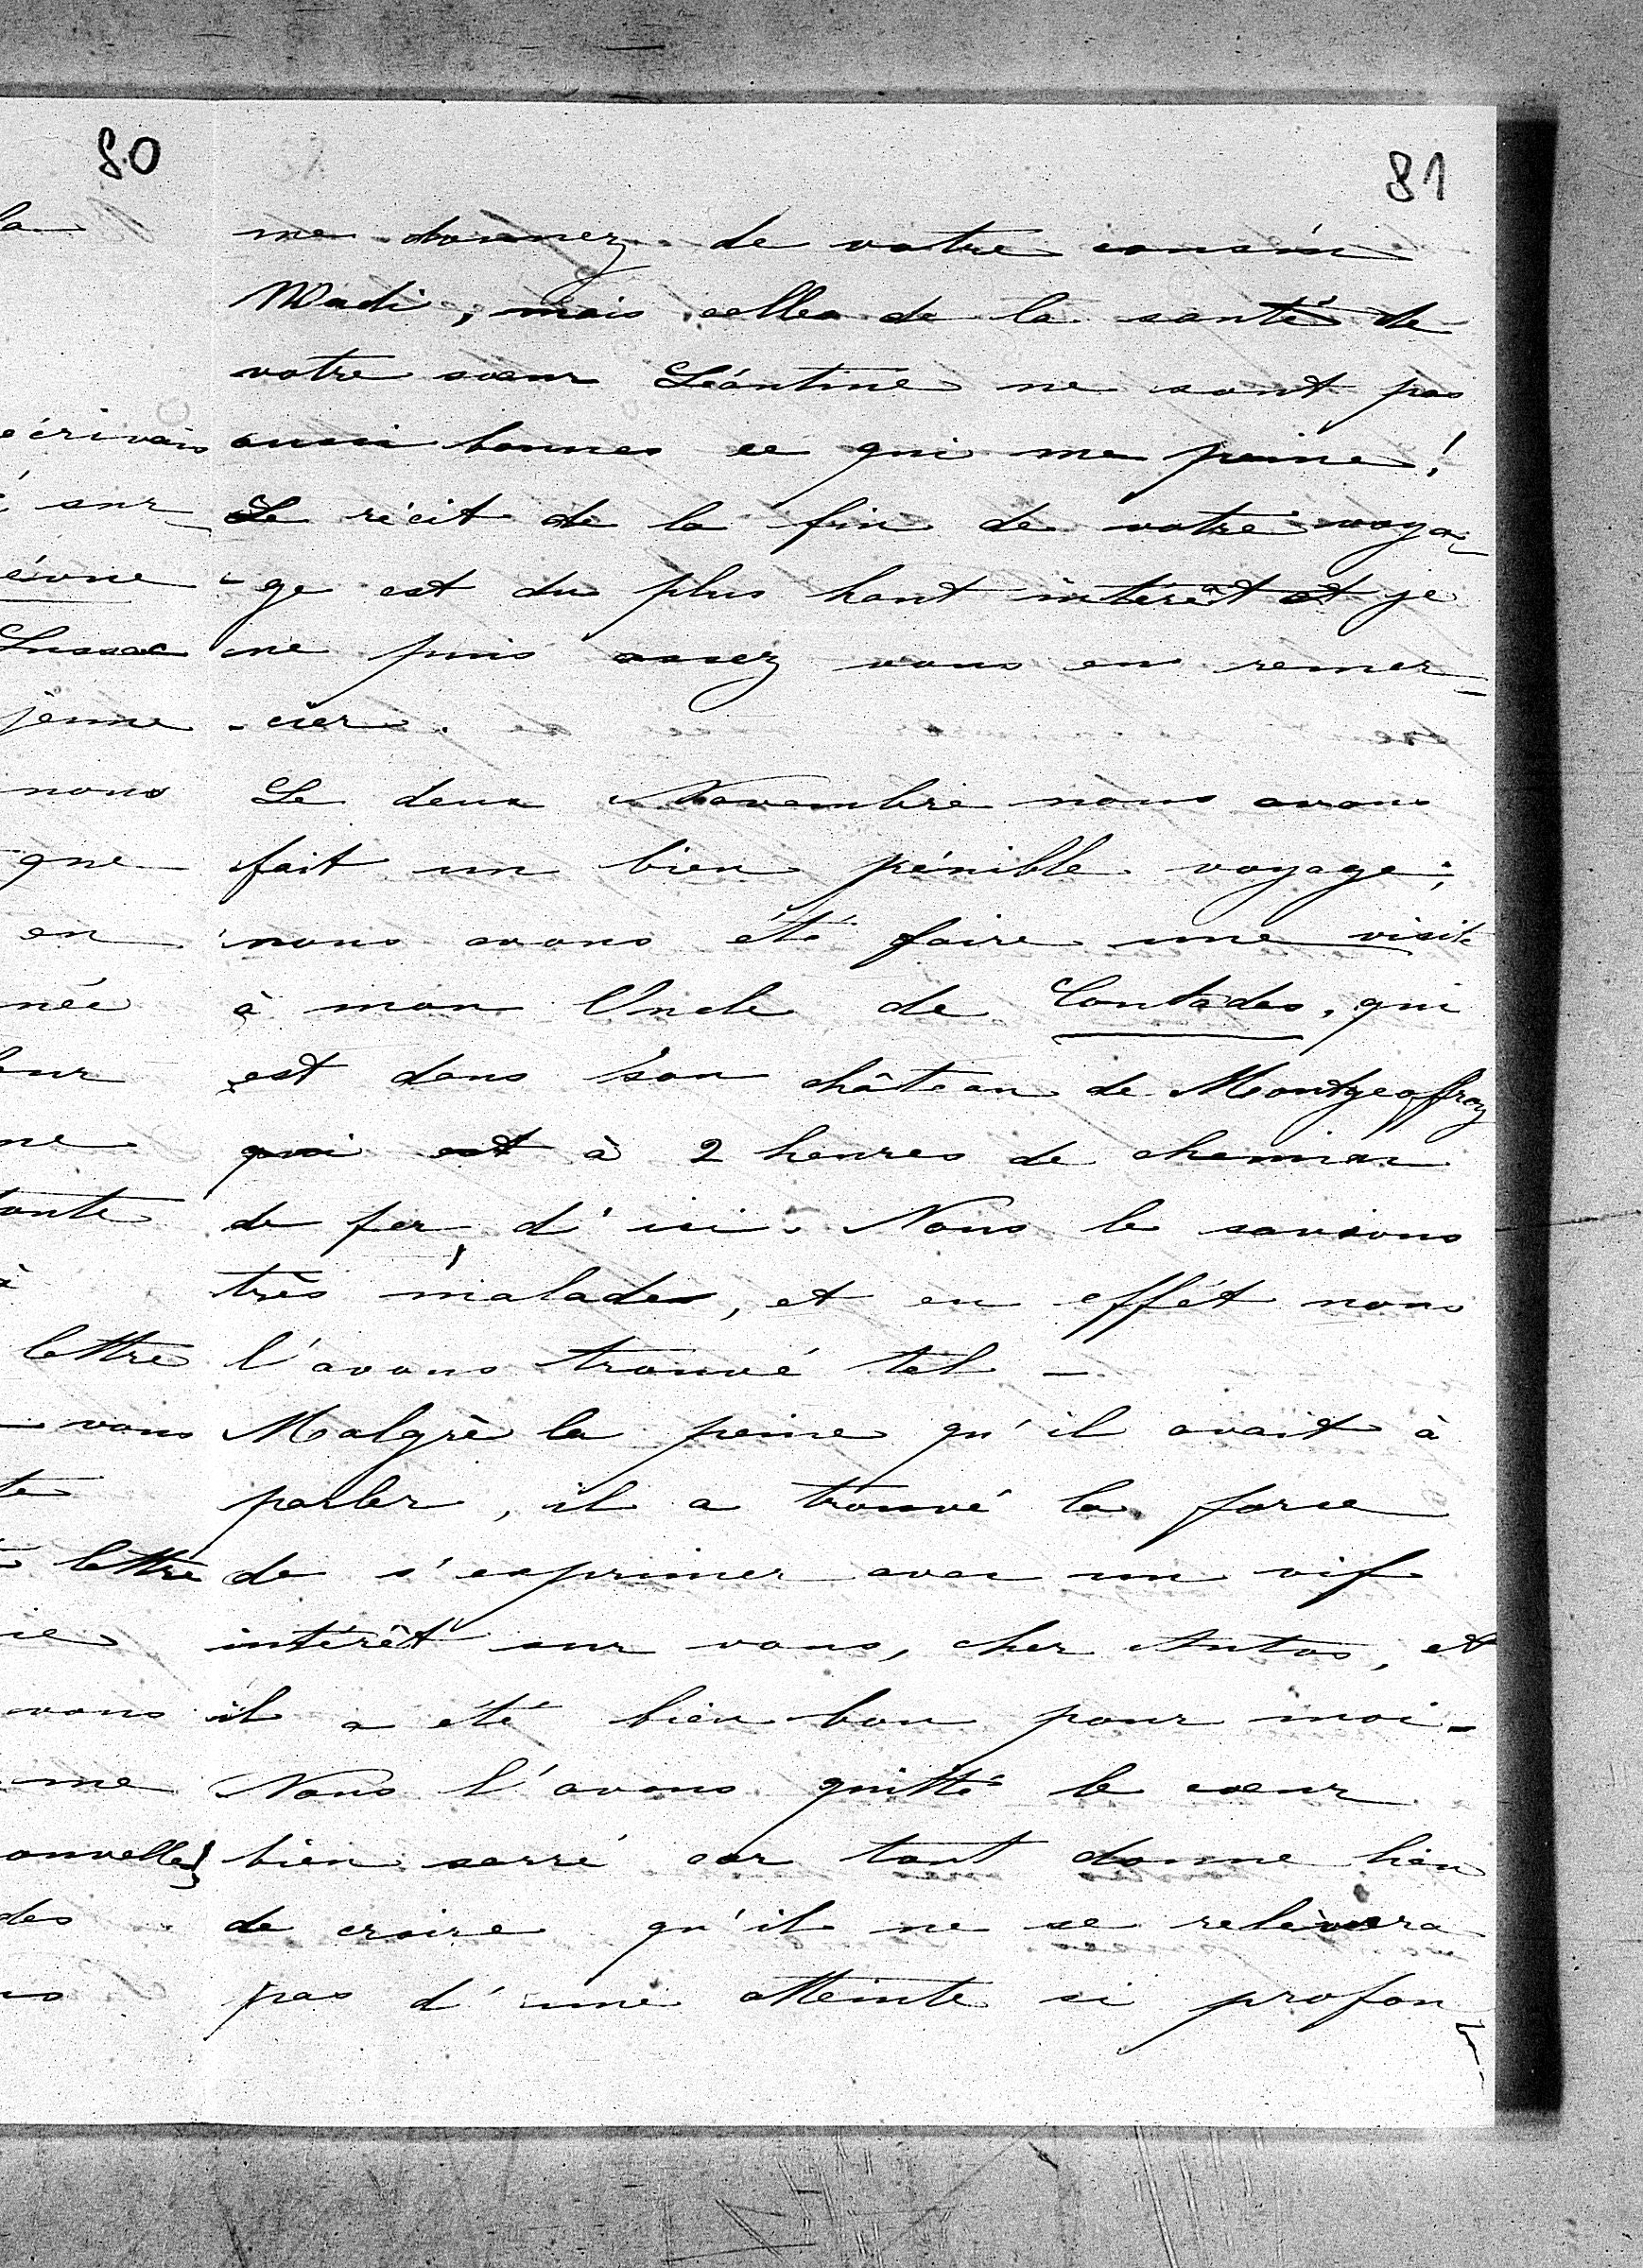 80
la
écrivais
sur
évne
Lussac
jeune
nous
que
en
née
eur
ne
tante
à
lettre
vous
te
lettre
ie
vous
me
ouvelles
des
us
81
me donnez de votre cousin
Wadi, mais celles de la santé de
votre sœur Léontine ne sont pas
aussi bonnes ce qui me peine !
Le récit de la fin de votre voya-
-ge est du plus haut intérêt et je
ne puis assez vous en remer-
-cier.
Le deux Novembre nous avons
fait un bien pénible voyage ;
nous avons été faire une visite
à mon Oncle de Contades, qui
est dans son château de Montgeoffroy
qui est à 2 heures de chemin
de fer d'ici. Nous le savions
très malade, et en effet nous
l'avons trouvé tel -
Malgrè la peine qu'il avait à
parler, il a trouvé la force
de s'exprimer avec un vif
intérêt sur vous, cher Antos, et
il a été bien bon pour moi -
Nous l'avons quitté le cœur
bien serré car tout donne lieu
de croire qu'il ne se relèvera
pas d'une atteinte si profon